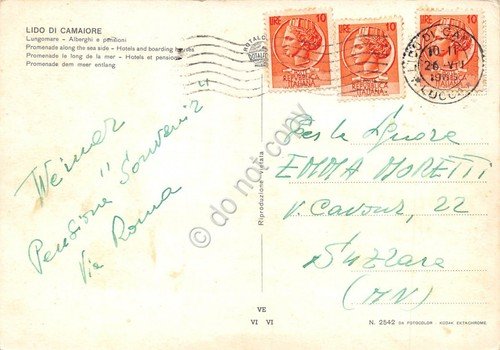 LIDO DI CAMAIORE
Lungomare - Alberghi e pensioni
Promenade along the sea side - Hotels and boarding houses
Promenade le long de la mer - Hotels et pensions
Promenade dem meer entlang.
LIRE 10
LIRE 10
LIRE 10
LIDO DI CAM
10-11
26 VII
LUCCA
Werner
Pensione "Souvenir"
Via Roma
Riproduzione vietata
do not copy
Per la Signora
EMMA MORETTI
V. Cavour, 22
Suzzara
(MN)
VE
VI VI
N. 2542 DA FOTOCOLOR - KODAK EKTACHROME